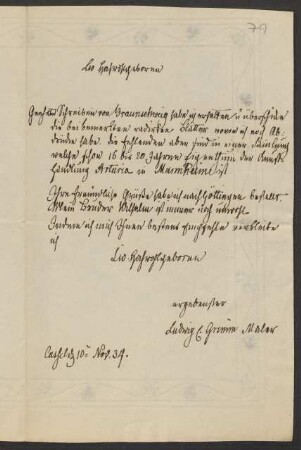 79
Ew Hochwohlgeboren
Geehrtes Schreiben von Braunschweig habe ich erhalten, u überschicke
die bei bemerkten radirten Blätter wovon ich noch Ab-
drücke habe. die fehlenden aber sind in einer Samlung
welche schon 16 bis 20 Jahre Eigenthum der Kunst-
handlung Artaria in Mannheim ist
Ihre freundlichen Grüße habe ich nach Göttingen bestellt.
Mein Bruder Wilhelm ist immer noch unwohl
Indem ich mich Ihnen bestens Empfehle verbleibe
ich
Ew Hochwohlgeboren
ergebenster
Ludwig E. Grimm Maler
Cassel d. 10ᵗ Nov. 34.